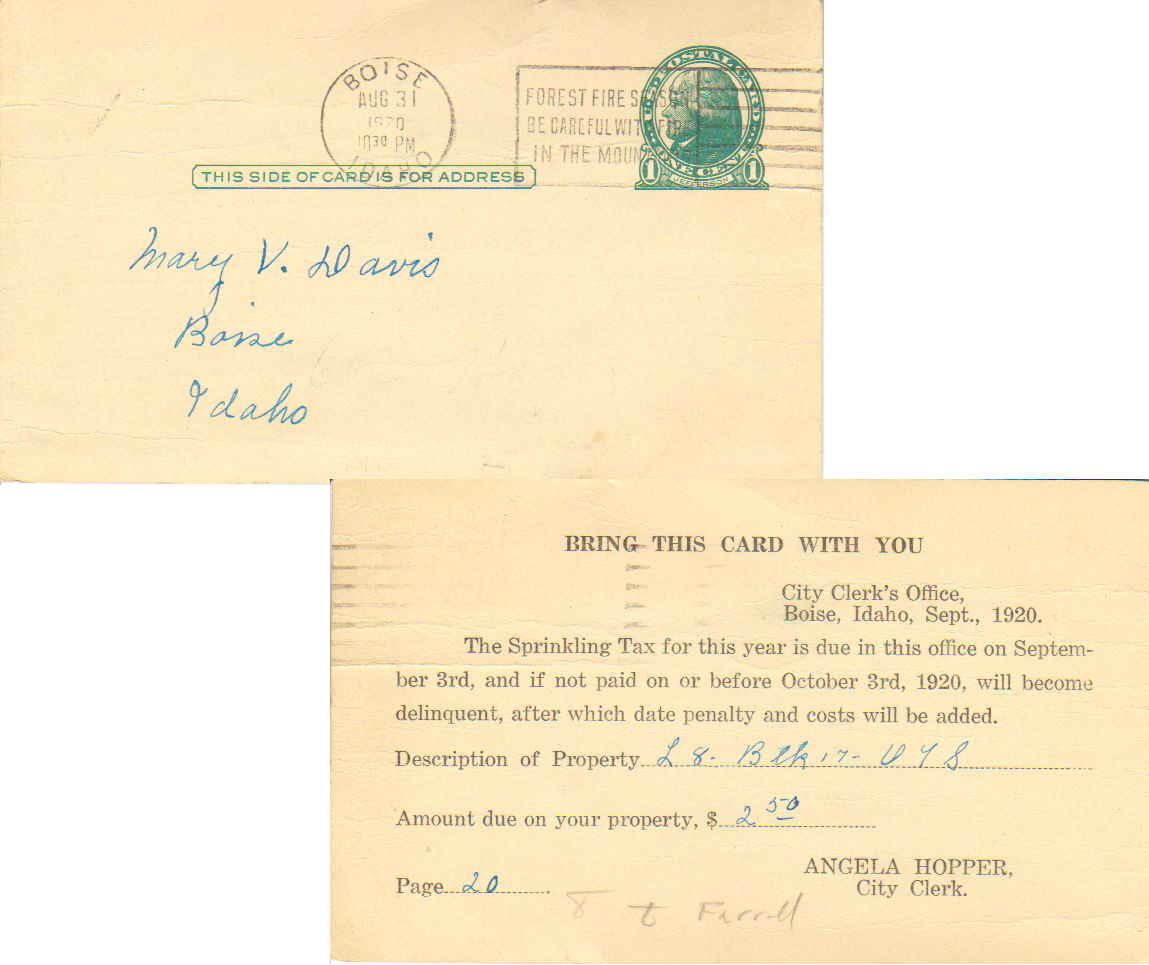 BOISE
AUG 31
1920
10 30 PM
IDAHO
FOREST FIRE
BE CAREFUL WITH FIRE
IN THE
U.S. POSTAL CARD
ONE CENT
1 JEFFERSON 1
THIS SIDE OF CARD IS FOR ADDRESS
Mary V. Davis
Boise
Idaho
BRING THIS CARD WITH YOU
City Clerk's Office,
Boise, Idaho, Sept., 1920.
The Sprinkling Tax for this year is due in this office on Septem-
ber 3rd, and if not paid on or before October 3rd, 1920, will become
delinquent, after which date penalty and costs will be added.
Description of Property L 8- Blk 17- O T S
Amount due on your property, $ 2 50
ANGELA HOPPER,
Page 20.
City Clerk.
Farrell